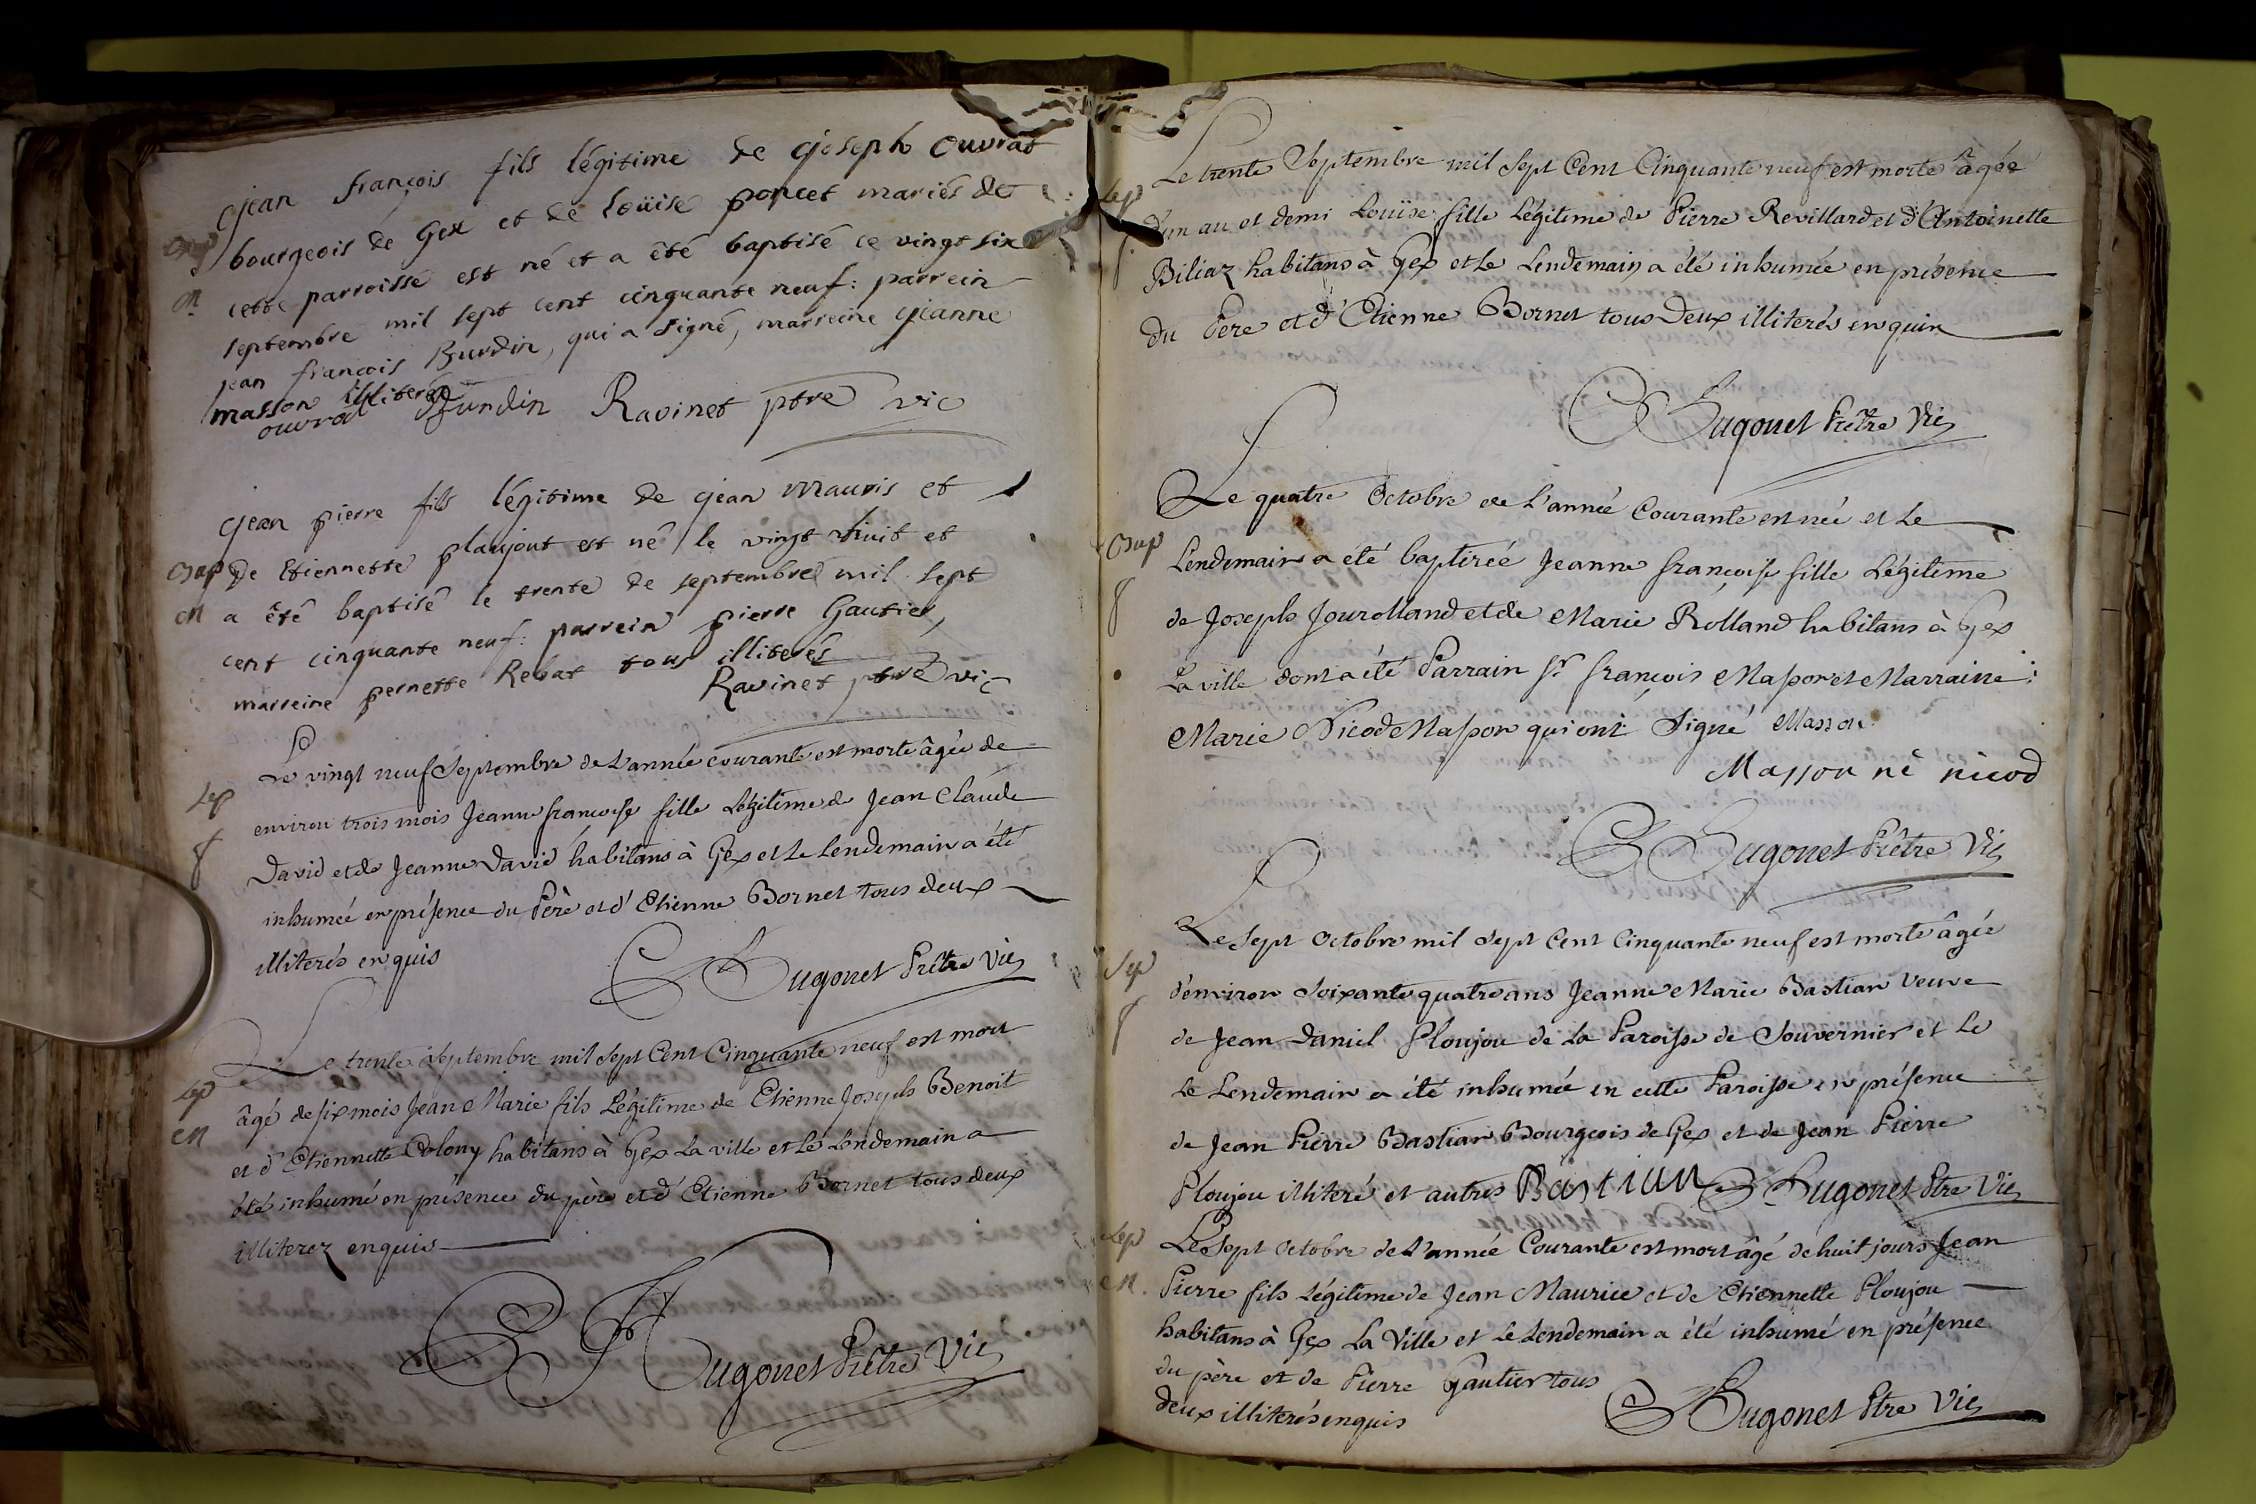 jean françois fils légitime de joseph ouvrat
bourgeois de Gex et de Loüise poncet mariés de
cette parroisse est né et a êté baptisé ce vingt six
septembre mil sept cent cinquante neuf: parrein
jean françois Burdin, qui a signé, marreine jeanne
masson illiterée
ouvrat Burdin Ravinet ptre vic
Bap
on
jean pierre fils légitime de jean mauris et
de Etiennette plaujout est né le vingt huit et
a êté baptisé le trente de septembre mil sept
cent cinquante neuf: parrein pierre Gautier,
marreine pernette Rebat tous illiterés
Ravinet ptre vic
Bap
en
Le vingt neuf Septembre de L'année courante est morte âgée de
environ trois mois Jeanne françoise fille Légitime de Jean Claude
David et de Jeanne David habitans à Gex et Le Lendemain a été
inhumée en présence du Père et d'Etienne Bornet tous deux
illiterés enquis
Hugonet Prêtre Vic
Sep
f
Le trente Septembre mil Sept Cent Cinquante neuf est mort
âgé de six mois Jean Marie fils Légitime de Etienne Joseph Benoit
et d'Etiennette Colony habitans à Gex La ville et Le Lendemain a
été inhumé en présence du père et d'Etienne Bornet tous deux
illiterez enquis
Hugonet Prêtre Vic
Sep
en
Le trente Septembre mil Sept Cent Cinquante neuf est morte âgée
d'un an et demi Louïse fille Légitime de Pierre Revillard et d'Antoinette
Biliaz habitans à Gex et Le Lendemain a été inhumée en présence
du Père et d'Etienne Bornet tous Deux illiterés enquis
Hugonet Prêtre Vic
Sep
f
Le quatre Octobre de L'année Courante est née et Le
Lendemain a été baptisée Jeanne françoise fille Légitime
de Joseph Jourolland et de Marie Rolland habitans à Gex
La ville dont a été Parrain Sr. françois Masson et Marraine
Marie Nicod Masson qui ont Signé Masson
Masson né nicod
Hugonet Prêtre Vic
Bap
f
Le Sept Octobre mil Sept Cent Cinquante neuf est morte âgée
d'environ Soixante quatre ans Jeanne Marie Bastian veuve
de Jean Daniel Ploujou de La Paroisse de Souvernier et Le
Le Lendemain a été inhumée en cette Paroisse en présence
de Jean Pierre Bastian Bourgeois de Gex et de Jean Pierre
Ploujou illiteré et autres Bastian Hugonet Ptre Vic
Sep
f
Le Sept Octobre de L'année Courante est mort âgé de huit jours Jean
Pierre fils Légitime de Jean Maurice et de Etiennette Ploujou
habitans à Gex La Ville et Le Lendemain a été inhumé en présence
du père et de Pierre Gautier tous
deux illiterés enquis
Hugonet Ptre Vic
Sep
en.